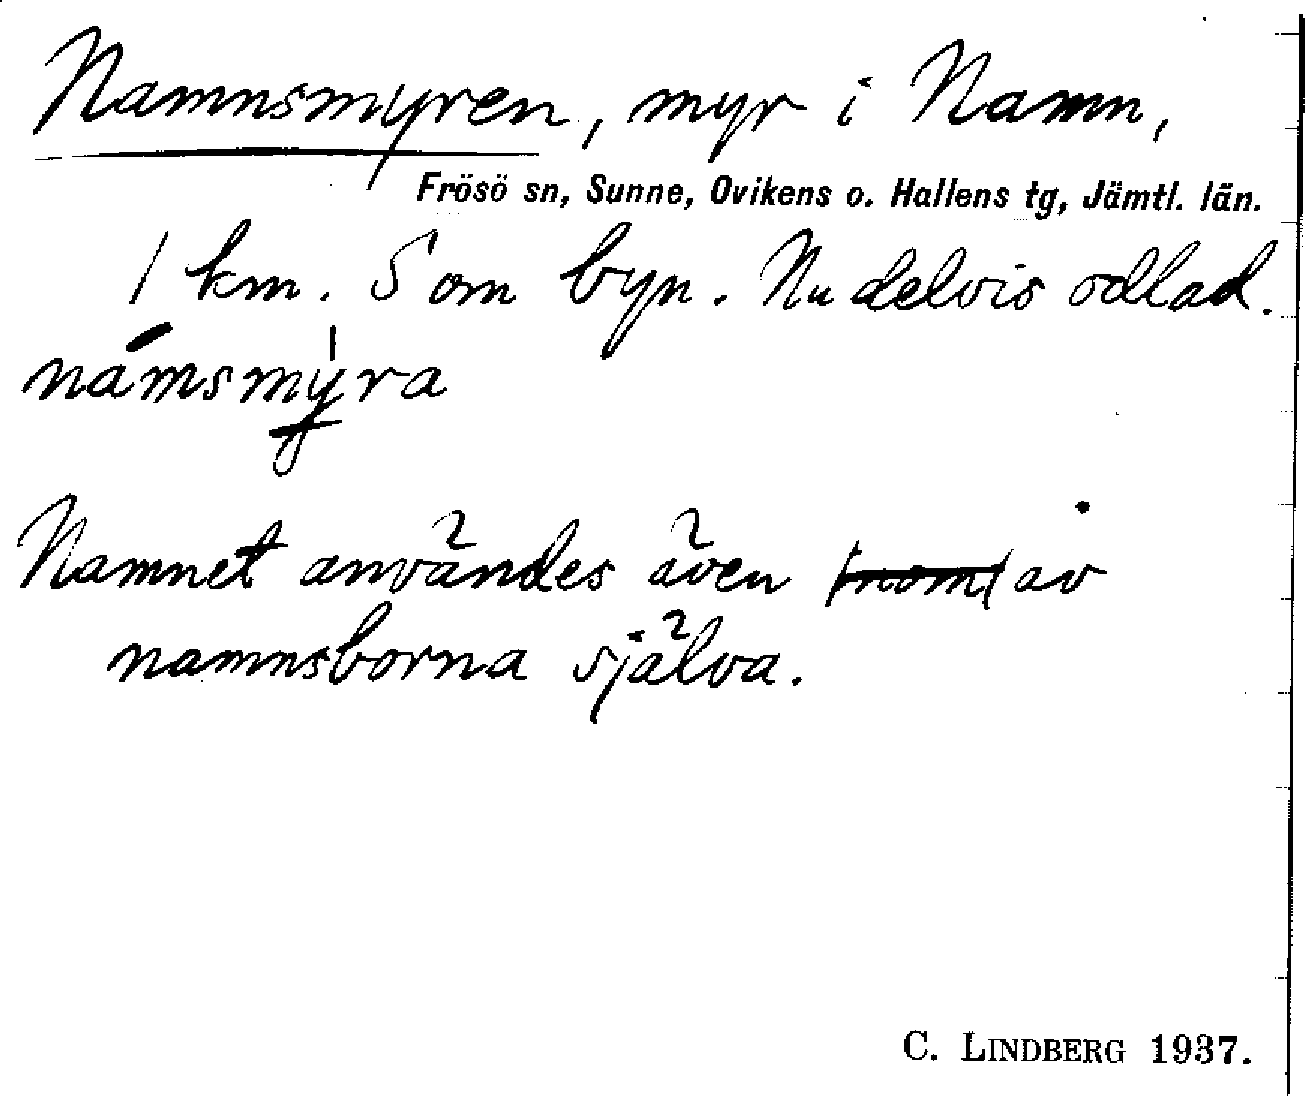 Namnsmyren, myr i Namn,
Frösö sn, Sunne, Ovikens o. Hallens tg, Jämtl. län.
1 km. S om byn. Nu delvis odlad.
námsmy̍ra
Namnet användes även av
namnsborna själva.
C. LINDBERG 1937.